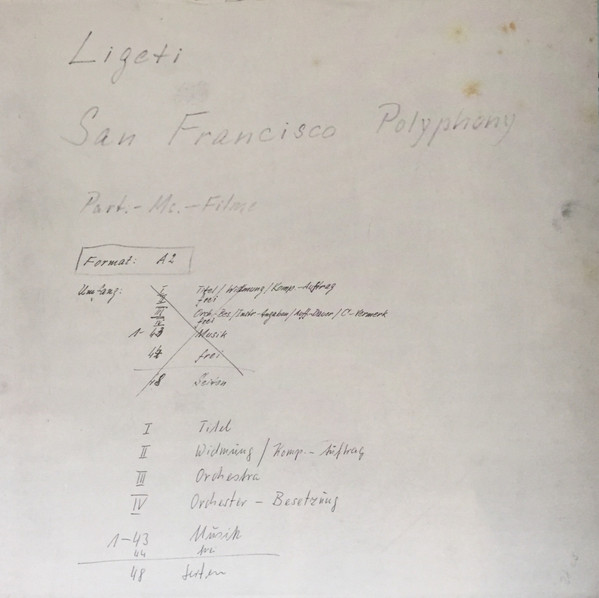 Ligeti
San Francisco Polyphony
Part.-Mc.-Filme
Format: A2
Umfang: I Titel / Widmung / Komp.-Auftrag
II frei
III Orch.-Bes. / Instr.-Angaben / Auff.-Dauer / C-Vermerk
IV frei
1-43 Musik
44 frei
48 Seiten
I Titel
II Widmung / Komp.-Auftrag
III Orchestra
IV Orchester - Besetzung
1-43 Musik
44
48 Seiten